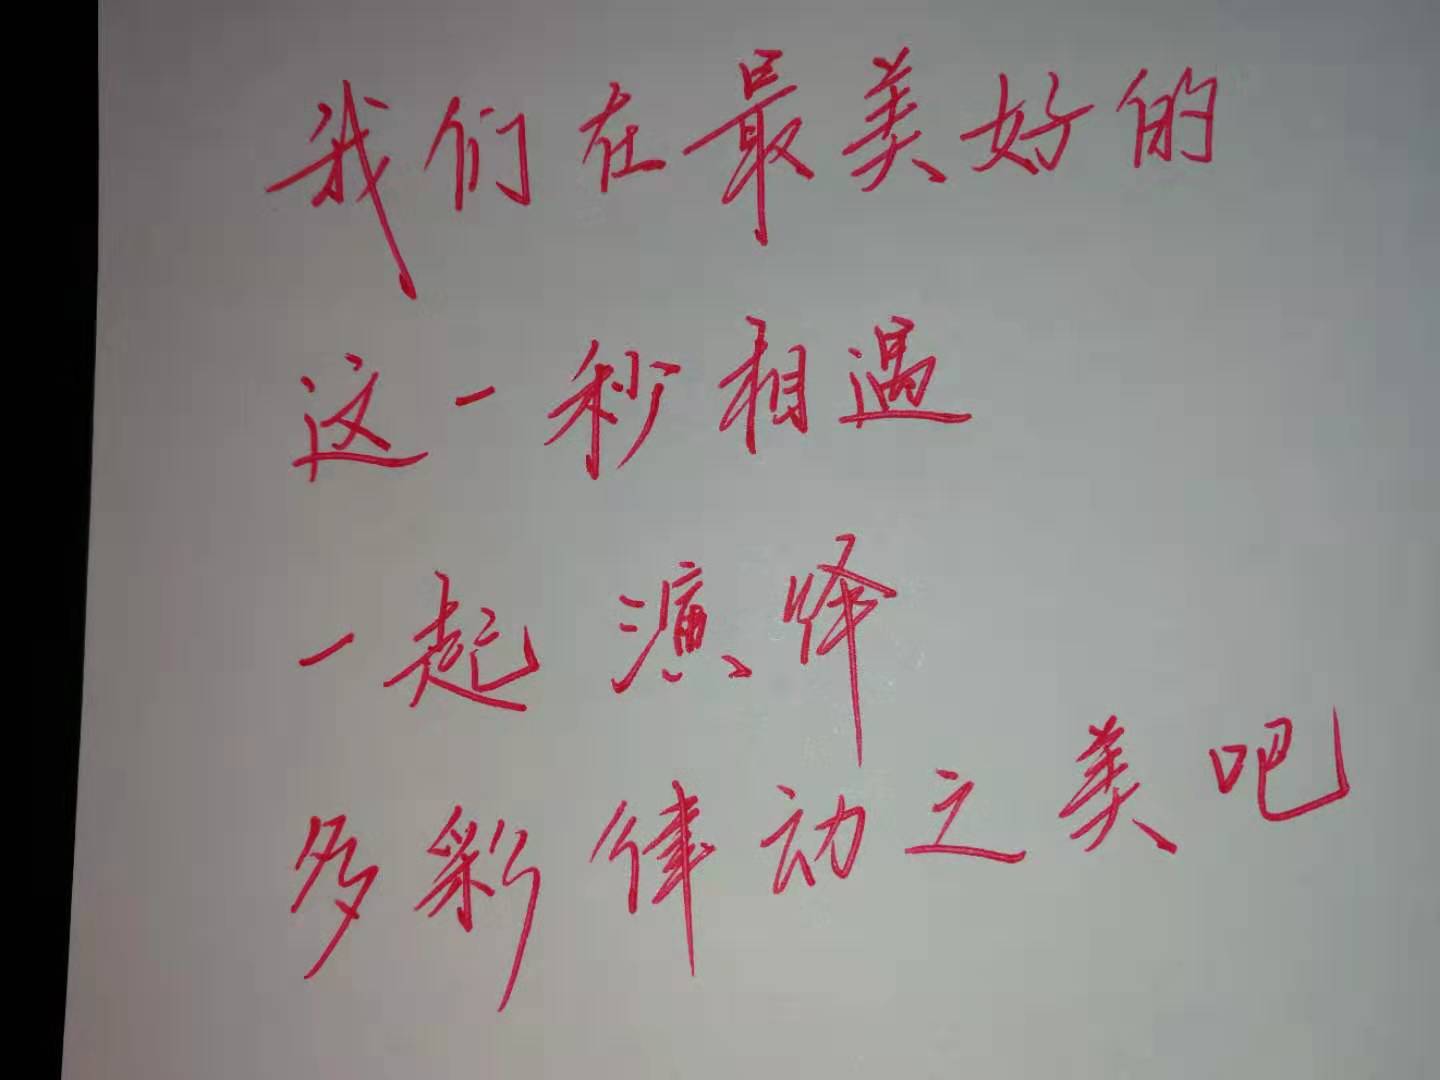 我们在最美好的
这一秒相遇
一起演绎
多彩律动之美吧